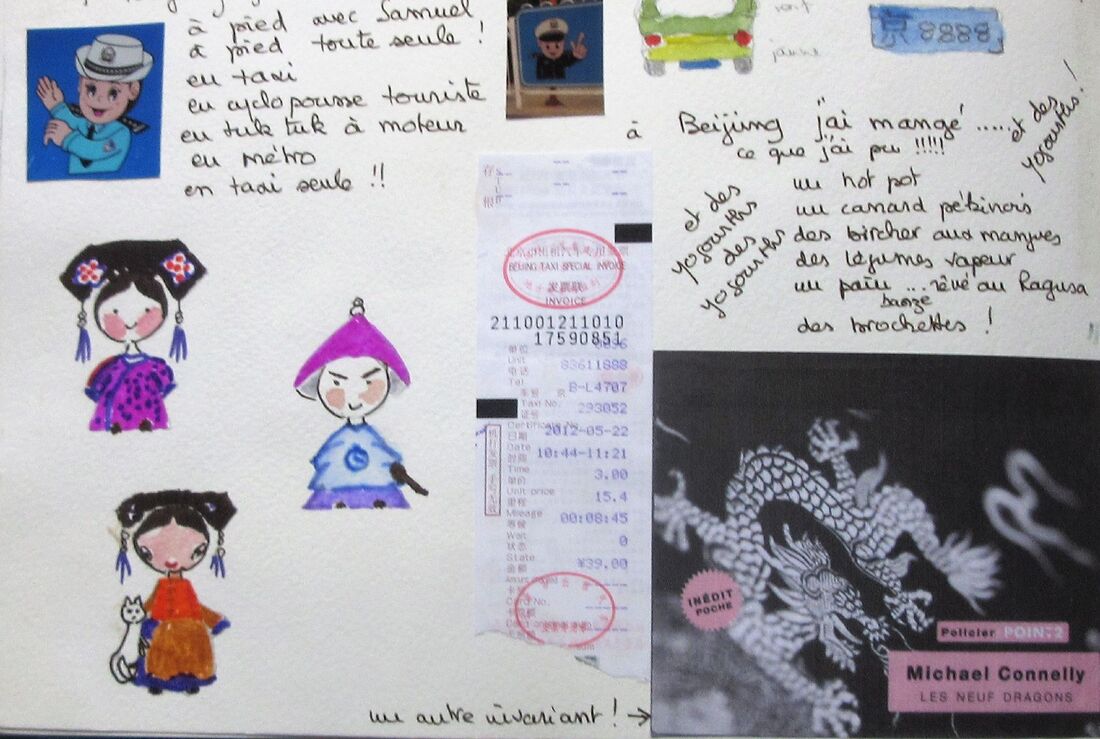 à pied avec Samuel
à pied toute seule !
en taxi
en cyclopousse touriste
en tuk tuk à moteur
en métro
en taxi seule !!
vert
jaune
京 9888
à Beijing j'ai mangé .....
ce que j'ai pu !!!!!
et des yogourths !
un hot pot
un canard pékinois
des bircher aux mangues
des légumes vapeur
un pain ... rêvé au Ragusa
baoze
des brochettes !
et des
yogourths
des
yogourths
存根
北京市出租汽车专用发票
BEIJING TAXI SPECIAL INVOICE
发票联
INVOICE
211001211010
17590851
单位
Unit
电话 83611888
Tel
车号 京B-L4707
Taxi No.
证号 293052
Certificate No.
日期 2012-05-22
Date
时间 10:44-11:21
Time
单价 3.00
Unit price
里程 15.4
Mileage
等候 00:08:45
Wait
状态 0
State
金额 ¥39.00
Card No.
INÉDIT
POCHE
Policier POINTS
Michael Connelly
LES NEUF DRAGONS
un autre invariant ! →